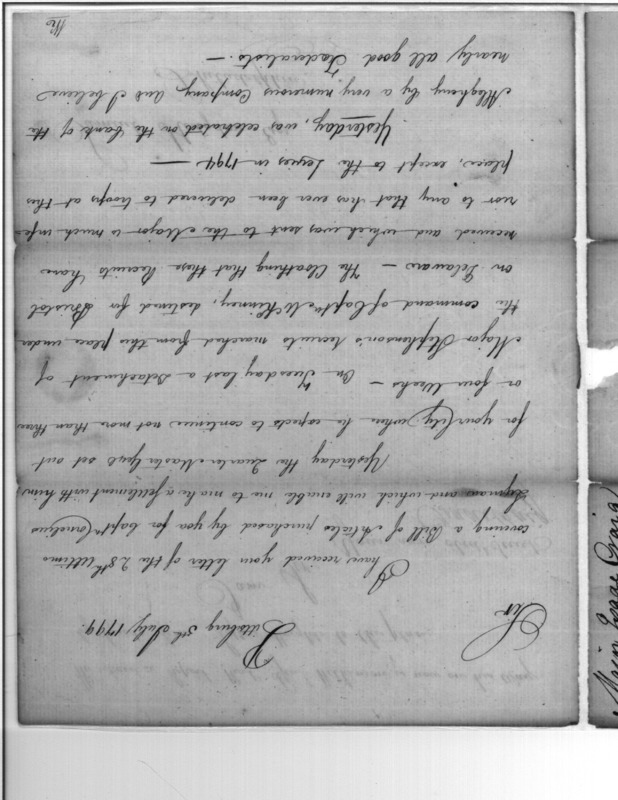 Pittsburg 5th July 1799.
Sir
I have received your letter of the 28th Ultimo
covering a Bill of Articles purchased by you for Capt Cornelius
Lyman and which will enable me to make a settlement with him,
Yesterday the Quarter Master Genl set out
for your City where he expects to continue not more than three
or four Weeks — On Tuesday last a detachment of
Major Stephenson's recruits marched from this place under
the command of Capt McKinney, destined for Bristol
on Delaware — The Cloathing that those Recruits have
received and which was sent to the Major is much infe
rior to any that has ever been delivered to troops at this
place, except to the Levies in 1794 —
Yesterday, was celebrated on the bank of the
Allegheny by a very numerous Company, and I believe
nearly all good Fœderalists. —
Major Isaac Craig